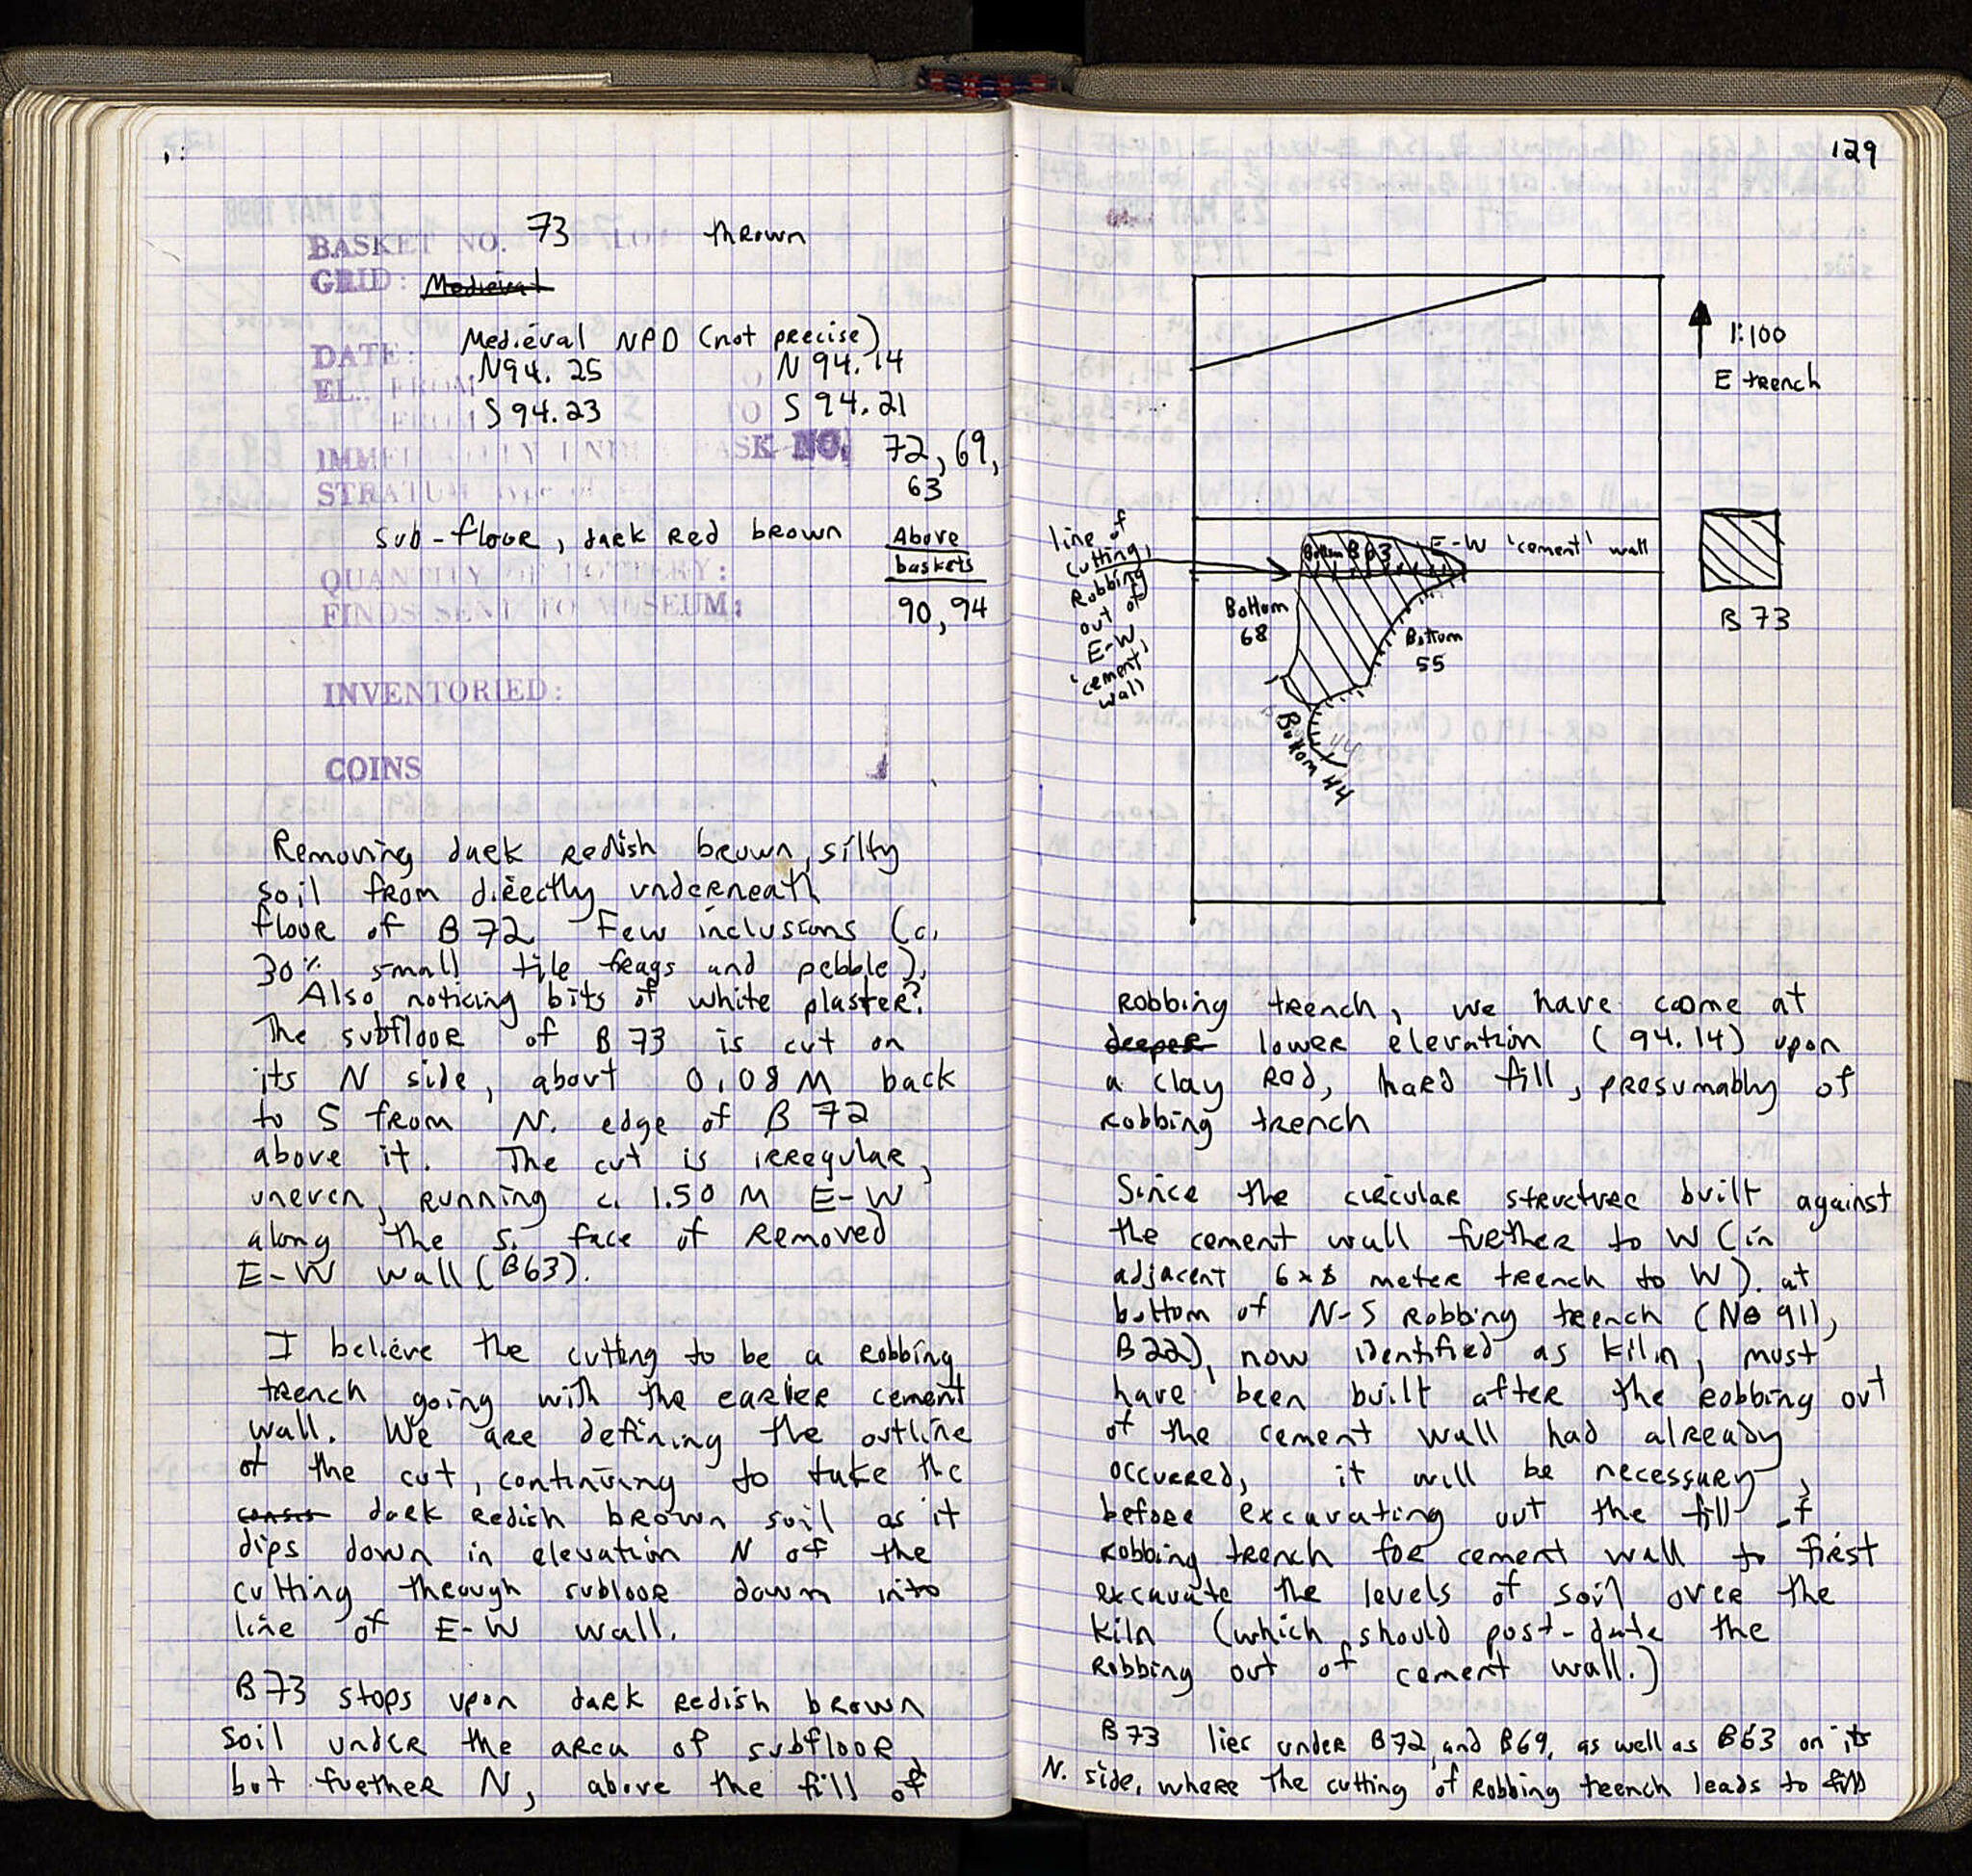 BASKET NO. 73 LOT thrown
GRID: Medieval
Medieval NPD (not precise)
DATE:
N94.25 N 94.14
EL. FROM TO
S 94.23 S 94.21
FROM TO
IMMEDIATELY UNDER BASK NO. 72, 69,
63
STRATUM Type of
Sub-floor, dark red brown Above
baskets
QUANTITY OF POTTERY:
FINDS SENT TO MUSEUM: 90, 94
INVENTORIED:
COINS
Removing dark redish brown, silty
soil from directly underneath
floor of B 72. Few inclusions (c.
30% small tile frags and pebble).
Also noticing bits of white plaster?
The subfloor of B 73 is cut on
its N side, about 0.08 M back
to S from N. edge of B 72
above it. The cut is irregular,
uneven, running c. 1.50 M E-W
along the S. face of removed
E-W wall (B63).
I believe the cutting to be a robbing
trench going with the earlier cement
wall. We are defining the outline
of the cut, continuing to take the
dark redish brown soil as it
dips down in elevation N of the
cutting through subloor down into
line of E-W wall.
B 73 stops upon dark redish brown
soil under the area of subfloor,
but further N, above the fill of
129
1:100
E trench
line of
cutting,
Robbing
out of
E-W
'cement'
wall
Bottom B63
E-W 'cement' wall
Bottom
68
Bottom
55
Bottom 44
B 73
robbing trench, we have come at
deeper lower elevation (94.14) upon
a clay red, hard fill, presumably of
robbing trench
Since the circular structure built against
the cement wall further to W (in
adjacent 6x8 meter trench to W). at
bottom of N-S Robbing trench (NB 911,
B22), now identified as kiln, must
have been built after the robbing out
of the cement wall had already
occured, it will be necessary,
before excavating out the fill of
robbing trench for cement wall to first
excavate the levels of soil over the
kiln (which should post-date the
robbing out of cement wall.)
B73 lies under B72, and B69, as well as B63 on its
N. side, where the cutting of robbing trench leads to fill